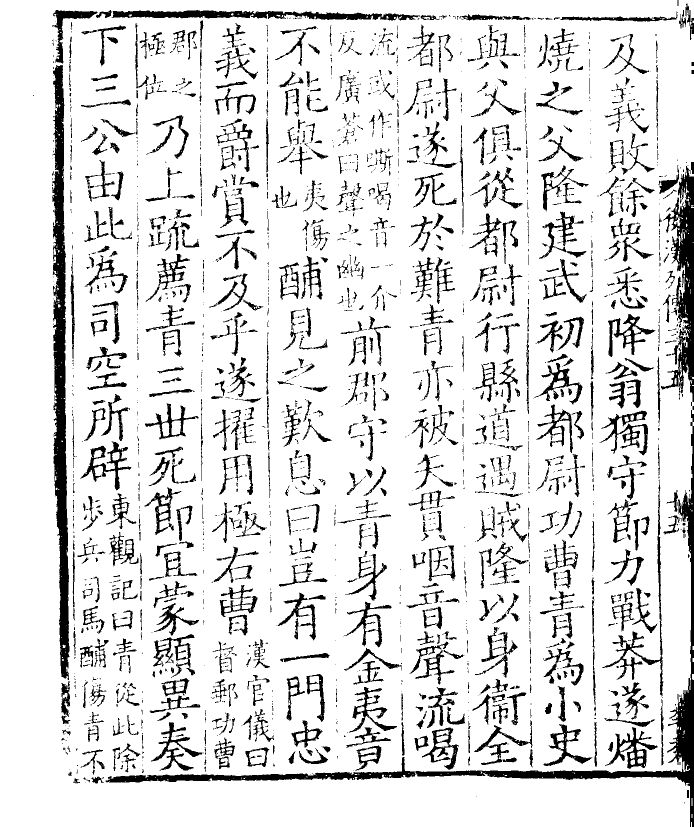 及義敗餘衆悉降翁獨守節力戰莽遂燔
燒之父隆建武初爲都尉功曹青爲小史
與父俱從都尉行縣道遇賊隆以身衞全
都尉遂死於難青亦被矢貫咽音聲流喝
流或作嘶喝音一介
反廣蒼曰聲之幽也
前郡守以青身有金夷音
不能舉
夷傷
也
酺見之歎息曰豈有一門忠
義而爵賞不及乎遂擢用極右曹
漢官儀曰
督郵功曹
郡之
極位
乃上疏薦青三世死節宜蒙顯異奏
下三公由此爲司空所辟
東觀記曰青從此除
步兵司馬酺傷青不